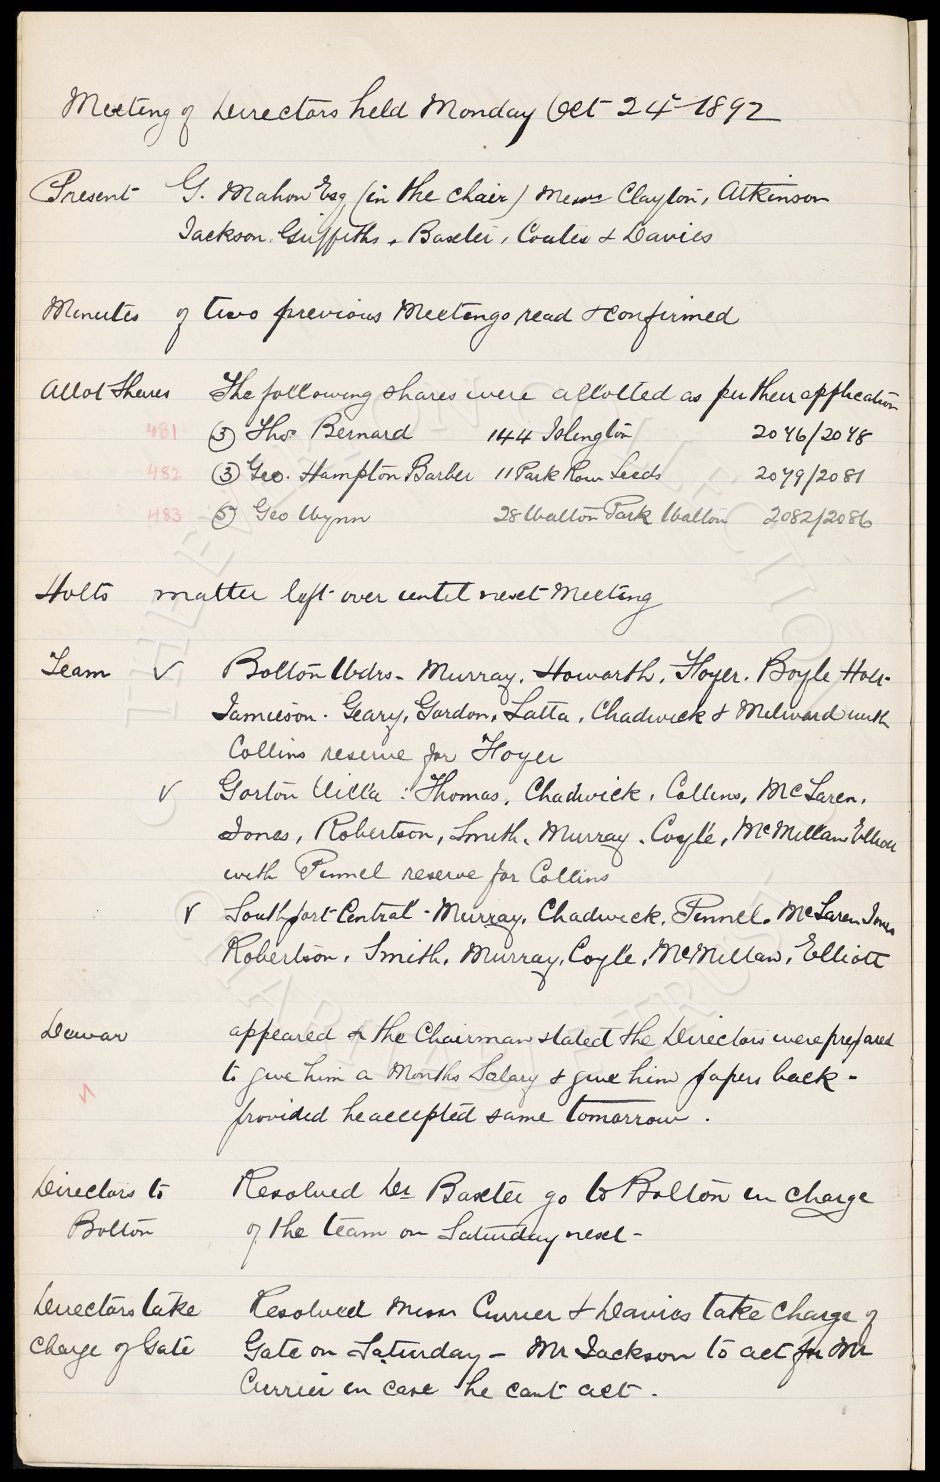 Meeting of Directors held Monday Oct 24th 1892
Present G. Mahon Esq (in the chair) Messrs Clayton, Atkinson
Jackson, Griffiths, Baxter, Coates & Davies
Minutes of two previous Meetings read & confirmed
Allot Shares The following shares were allotted as per their application
481 (3) Thos Bernard 144 Islington 2046/2048
482 (3) Geo. Hampton Barber 11 Park Row Leeds 2079/2081
483 (5) Geo Wynn 28 Walton Park Walton 2082/2086
Holts matter left over until next Meeting
Team ✓ Bolton Wdrs - Murray, Howarth, Floyer. Boyle Holt
Jamieson. Geary, Gordon, Latta, Chadwick & Milward with
Collins reserve for Floyer
✓ Gorton Villa : Thomas, Chadwick, Collins, McLaren,
Jones, Robertson, Smith, Murray, Coyle, McMillan Elliott
with Pinnel reserve for Collins
✓ Southport Central - Murray, Chadwick, Pinnel, McLaren Jones
Robertson, Smith, Murray, Coyle, McMillan, Elliott
Dewar appeared & the Chairman stated the Directors were prepared
✓ to give him a Months Salary & give him papers back -
provided he accepted same tomorrow.
Directors to Resolved Dr Baxter go to Bolton in charge
Bolton of the team on Saturday next -
Directors take Resolved Messrs Currier & Davies take charge of
charge of Gate Gate on Saturday - Mr Jackson to act for Mr
Currier in case he cant act.
THE EVERTON COLLECTION
CHARITABLE TRUST